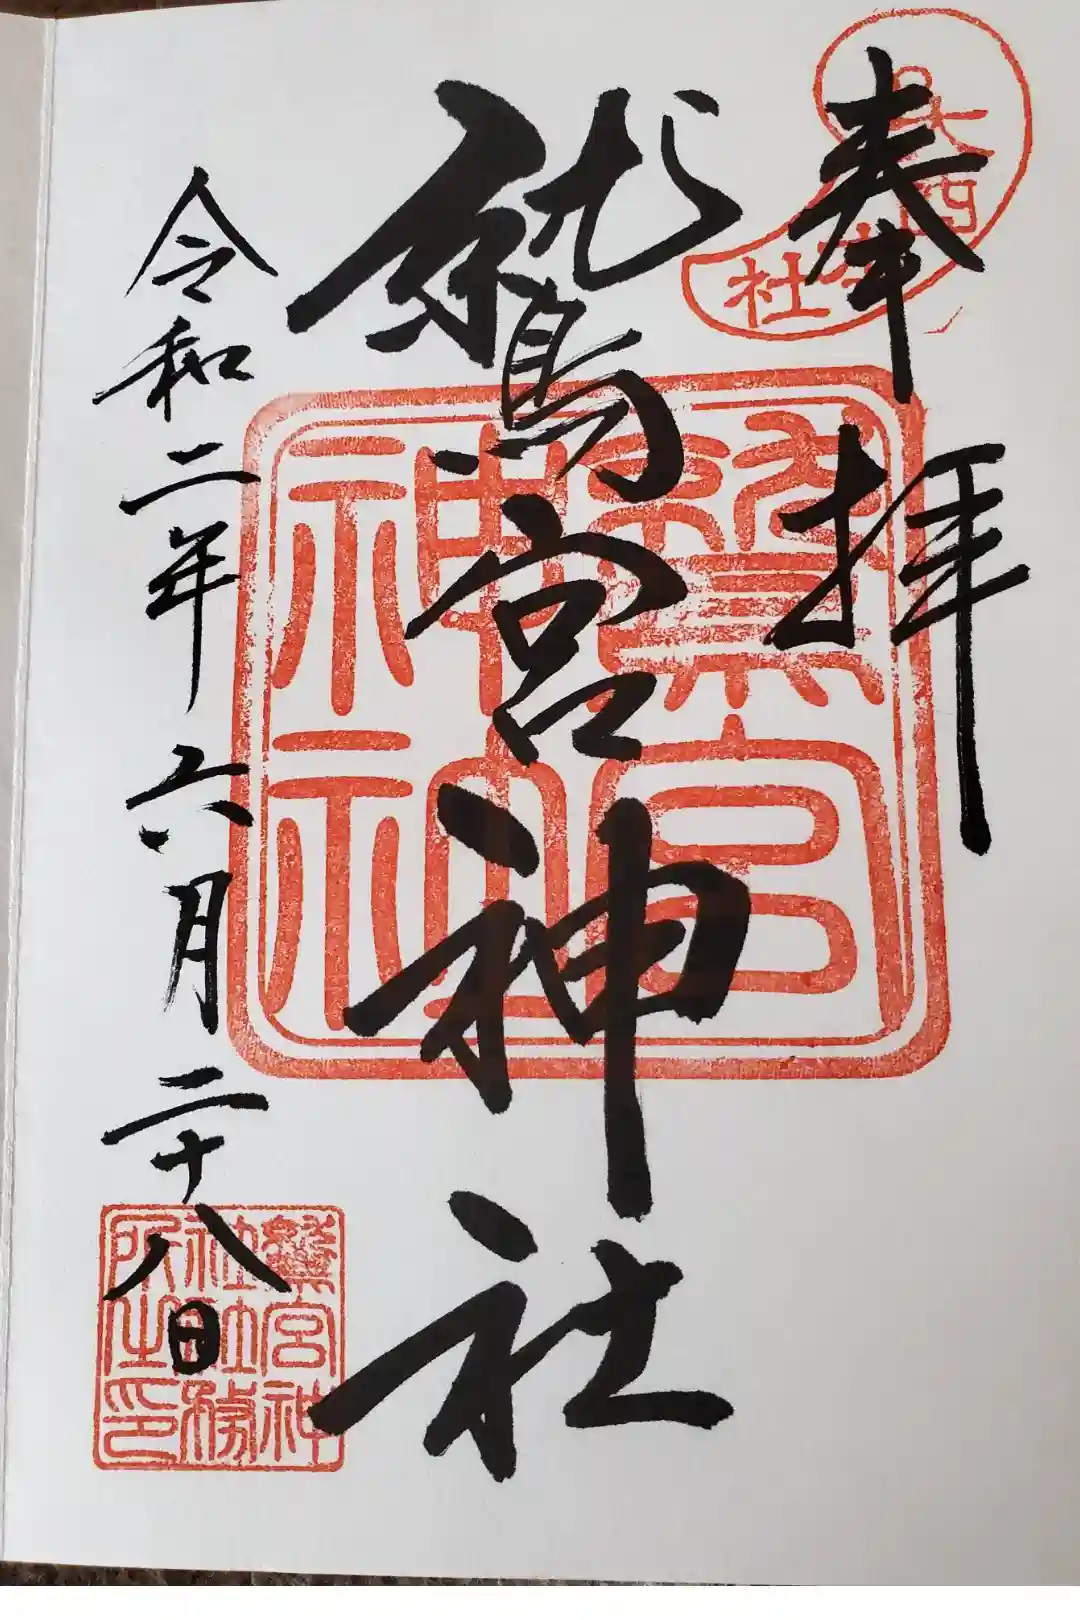 奉拝
鷲宮神社
令和二年六月二十八日
鷲宮
神社
鷲宮神
社社務
所之印